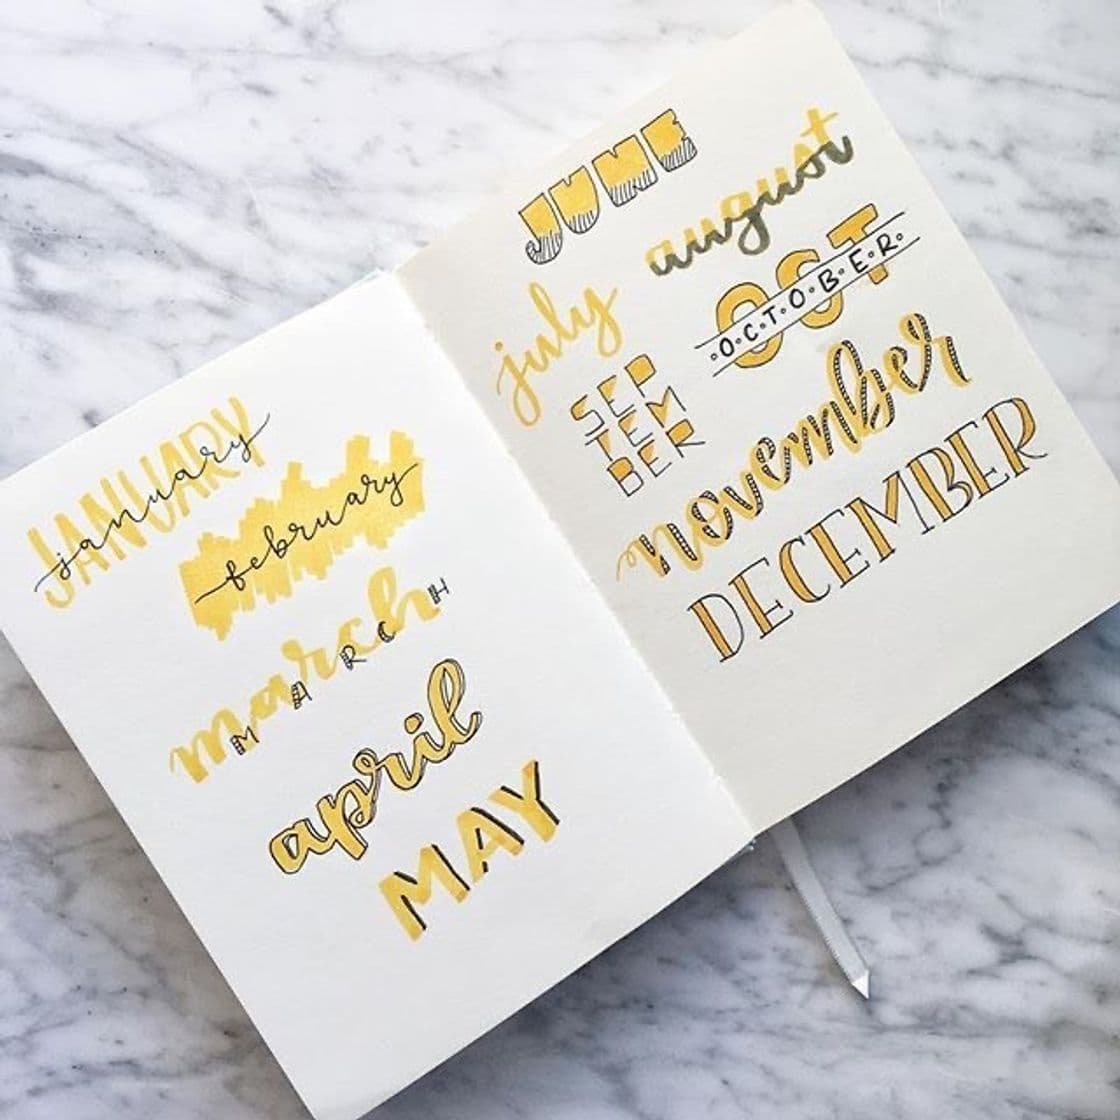 JANUARY
january
february
march
MARCH
april
MAY
JUNE
july
august
SEP
TEM
BER
OCT
O.C.T.O.B.E.R.
november
DECEMBER